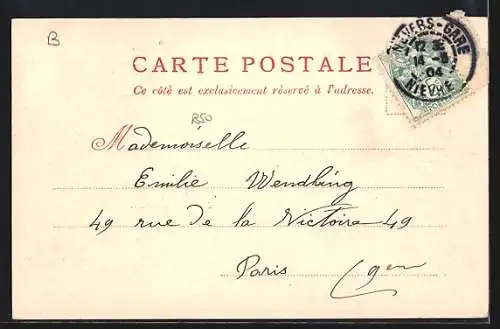 B
NEVERS-GARE
12
14 -8
04
NIEVRE
CARTE POSTALE
Ce côté est exclusivement réservé à l'adresse.
R50
Mademoiselle
Emilie Wendling
49 rue de la Victoire 49
Paris